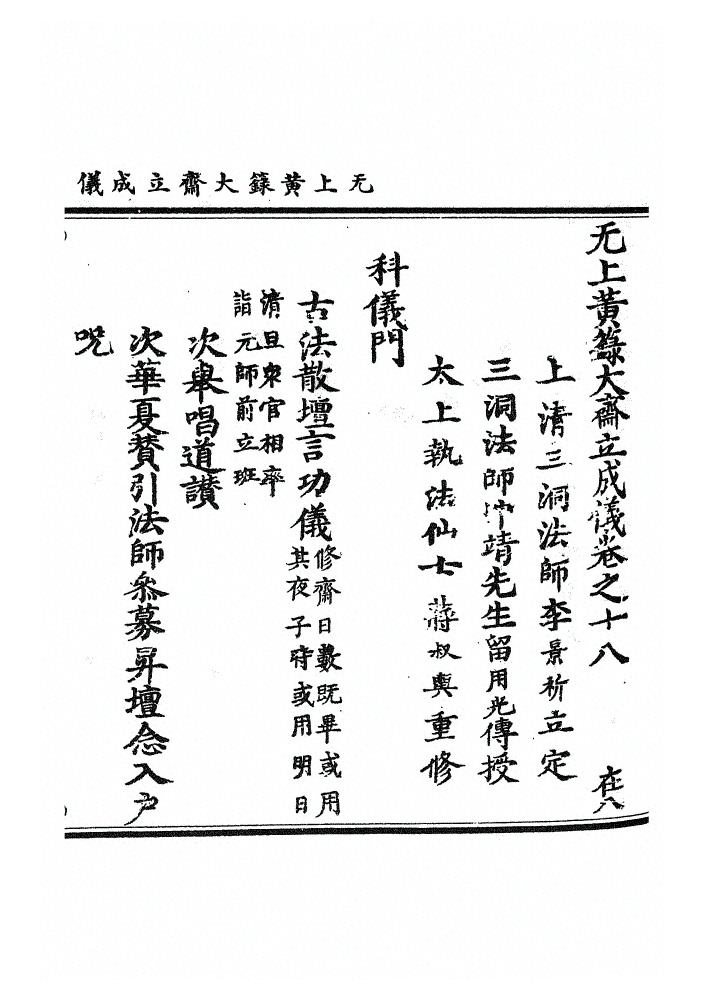 无上黃籙大齋立成儀
无上黃籙大齋立成儀卷之十八
在八
上清三洞法師李景祈立定
三洞法師冲靖先生留用光傳授
太上執法仙士蔣叔輿重修
科儀門
古法散壇言功儀
修齋日數旣畢或用
其夜子時或用明日
清旦衆官相率
詣元師前立班
次舉唱道讃
次華夏賛引法師叅募昇壇念入户
呪